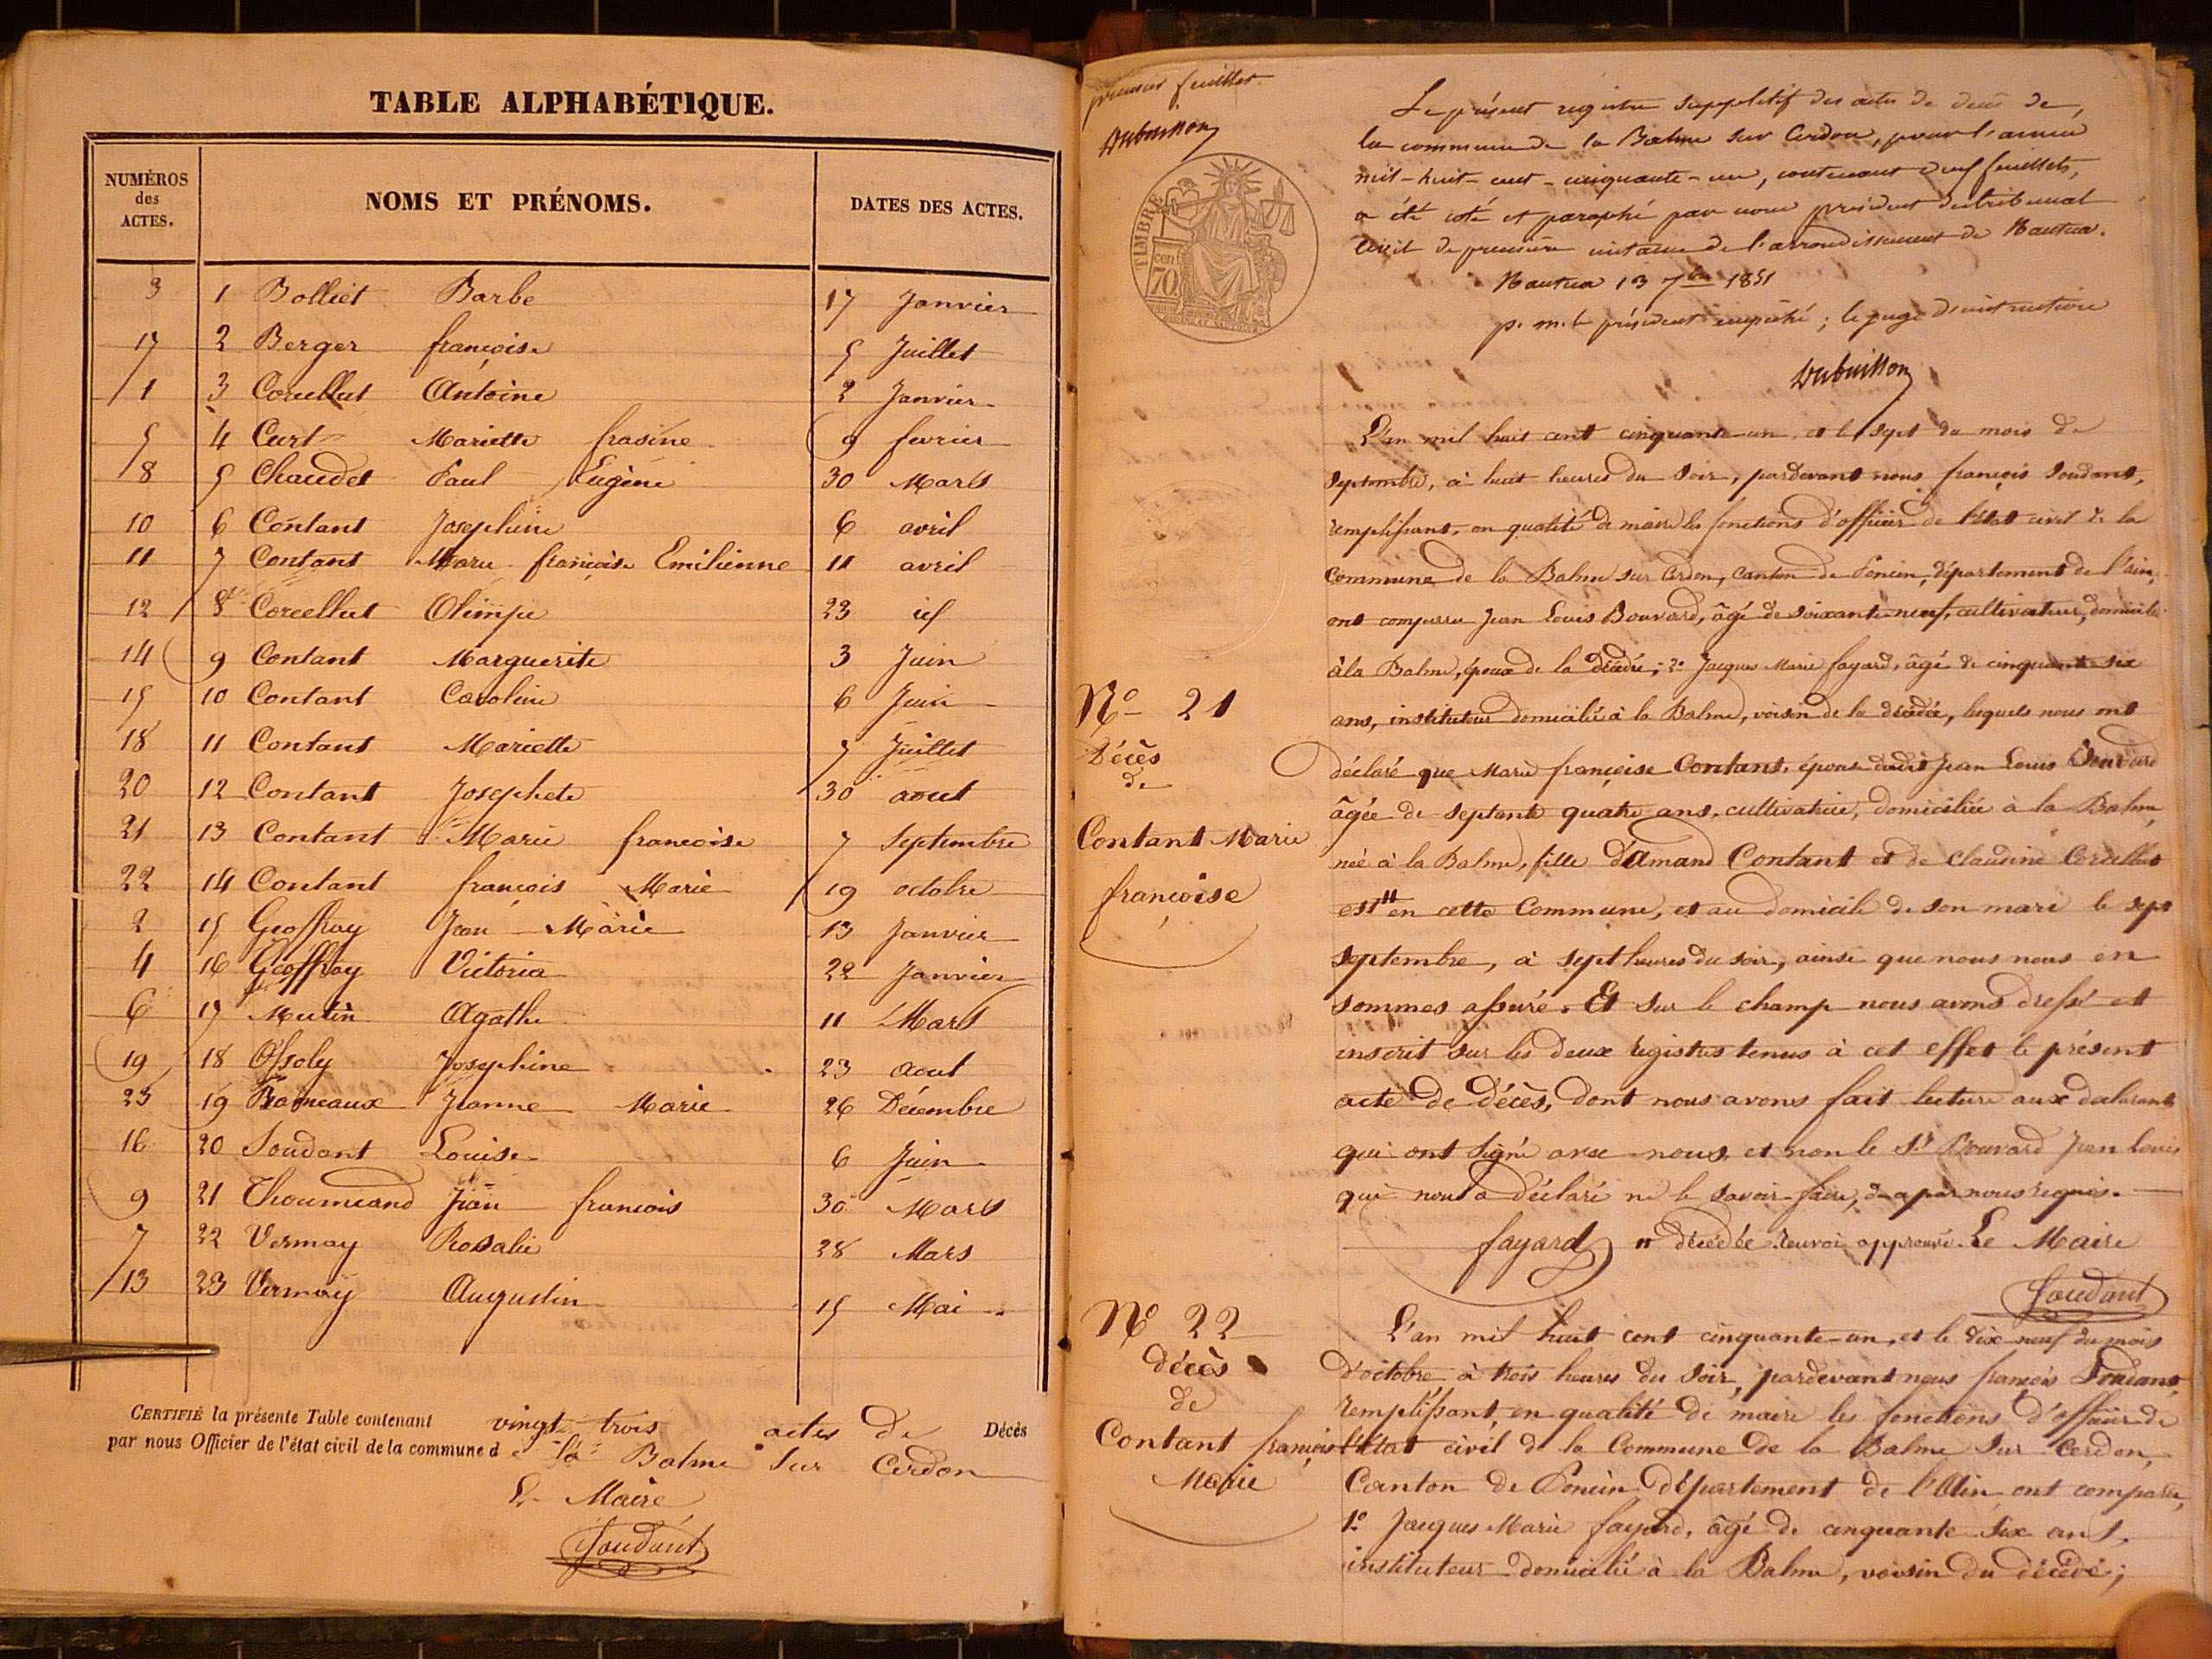 TABLE ALPHABÉTIQUE.
NUMÉROS
des
ACTES.
NOMS ET PRÉNOMS.
DATES DES ACTES.
3 1 Bolliet Barbe 17 Janvier
17 2 Berger françoise 5 Juillet
1 3 Corcellut Antoine 2 Janvier
5 4 Curt Mariette frasine 9 fevrier
8 5 Chaudet Paul Eugène 30 Mars
10 6 Contant Josephine 6 avril
11 7 Contant Marie françoise Emilienne 11 avril
12 8 Corcellut Olimpe 23 id
14 9 Contant Marguerite 3 Juin
15 10 Contant Caroline 6 Juin
18 11 Contant Mariette 7 Juillet
20 12 Contant Josephete 30 aout
21 13 Contant Marie françoise 7 Septembre
22 14 Contant françois Marie 19 octobre
2 15 Geoffray Jean Marie 13 Janvier
4 16 Geoffray Victoria 22 Janvier
6 17 Mutin Agathe 11 Mars
19 18 Ossoly Josephine 23 Aout
23 19 Rameaux Jeanne Marie 26 Décembre
16 20 Soudant Louise 6 Juin
9 21 Thoumeand Jean francois 30 Mars
7 22 Vermay Rosalie 28 Mars
13 23 Vermay Augustin 15 Mai
CERTIFIÉ la présente Table contenant vingt trois actes de Décès
par nous Officier de l'état civil de la commune d e la Balme sur Cerdon
Le Maire
Soudant
premier feuillet.
Dubuisson
TIMBRE
70 cen
Le présent registre supplétif des actes de decès de
la commune de la Balme sur Cerdon, pour l'année
mil-huit-cent-cinquante-un, contenant deux feuillets,
a été coté et paraphé par nous président du tribunal
civil de première instance de l'arrondissement de Nantua.
Nantua 13 7bre 1851
p. m. le président empêché; le juge d'instruction
Dubuisson
L'an mil huit cent cinquante-un, et le sept du mois de
septembre, à huit heures du soir, pardevant nous françois Soudant,
remplissant, en qualité de maire les fonctions d'officier de l'état civil de la
Commune de la Balme sur Cerdon, canton de Poncin, département de l'ain,
ont comparu Jean Louis Bouvard, âgé de soixante-neuf, cultivateur, domicilié
à la Balme, époux de la décédée; 2º Jacques Marie fayard, âgé de cinquante six
ans, instituteur domicilié à la Balme, voisin de la décédée, lesquels nous ont
Nº 21
Décès
de
Contant Marie
françoise
déclaré que Marie françoise Contant, épouse dudit Jean Louis Bouvard
âgée de septante quatre ans, cultivatrice, domiciliée à la Balme,
née à la Balme, fille d'Amand Contant et de claudine Corcellut
est " en cette Commune, et au domicile de son mari le sept
septembre, à sept heures du soir, ainsi que nous nous en
sommes assuré. Et sur le champ nous avons dressé et
inscrit sur les deux registres tenus à cet effet le présent
acte de décès, dont nous avons fait lecture aux déclarants
qui ont signé avec nous, et non le Sr Bouvard Jean Louis
qui nous a déclaré ne le savoir faire, de ce par nous requis.
fayard " décédée renvoi approuvé. Le Maire
Soudant
Nº 22
décès
de
Contant françois
Marie
L'an mil huit cent cinquante-un, et le dix-neuf du mois
d'octobre à trois heures du soir, pardevant nous françois Soudant,
remplissant, en qualité de maire les fonctions d'officier de
l'état civil de la Commune de la Balme sur Cerdon,
Canton de Poncin, département de l'Ain ont comparu,
1º Jacques Marie fayard, âgé de cinquante six ans,
instituteur domicilié à la Balme, voisin du décédé;